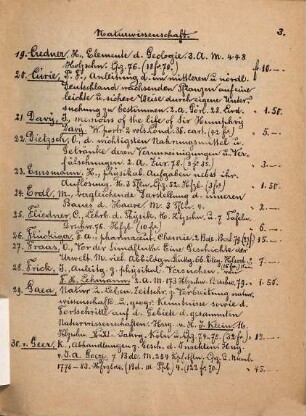 Naturwissenschaft. 3.
19. Credner, H., Elemente d. Geologie. 3. A. M. 448
Holzschn. Lpz. 76. ƒ 10.—
20. Curie, P. F., Anleitung d. im mittleren u. nördl.
Deutschland wachsenden Pflanzen auf eine
leichte u. sichere Weise durch eigene Unter-
suchung zu bestimmen. 1.50
21. Davy, J., memoirs of the life of Sir Humphry
Davy. W. portr. 2 vols. Lond. 36. cart. 5.—
22. Dietzsch, O., d. wichtigsten Nahrungsmittel u.
Getränke, deren Verunreinigungen u. Ver-
fälschungen. 3. A. Zür. 79. 2.—
23. Emsmann, H., physikal. Aufgaben nebst ihr.
Auflösung. 1.50
24. Erdl, M., vergleichende Darstellung d. inneren
Baues d. Haare. M. 3 Tfln. 4. 2.—
25. Fliedner, C., Lehrb. d. Physik. M. Holzschn. u. Tafeln.
4.—
26. Flückiger, F. A., pharmaceut. Chemie. 15.—
27. Fraas, O., Vor der Sündfluth! Eine Geschichte der
Urwelt. M. viel. Abbildgn. 4.—
28. Frick, J., Anleitg. z. physikal. Versuchen
1.50
29. Gaea. Natur u. Leben. Zeitschr. z. Verbreitung natur-
wissenschaftl. u. geogr. Kenntnisse sowie d.
Fortschritte auf d. Gebiete d. gesammten
Naturwissenschaften. Hrsg. v. H. J. Klein. M.
45.—
30. v. Geer, K., Abhandlungen z. Gesch. d. Insekten. Hrsg.
v. J. A. Goeze. 7 Bde. M.
1776–83. 12.—